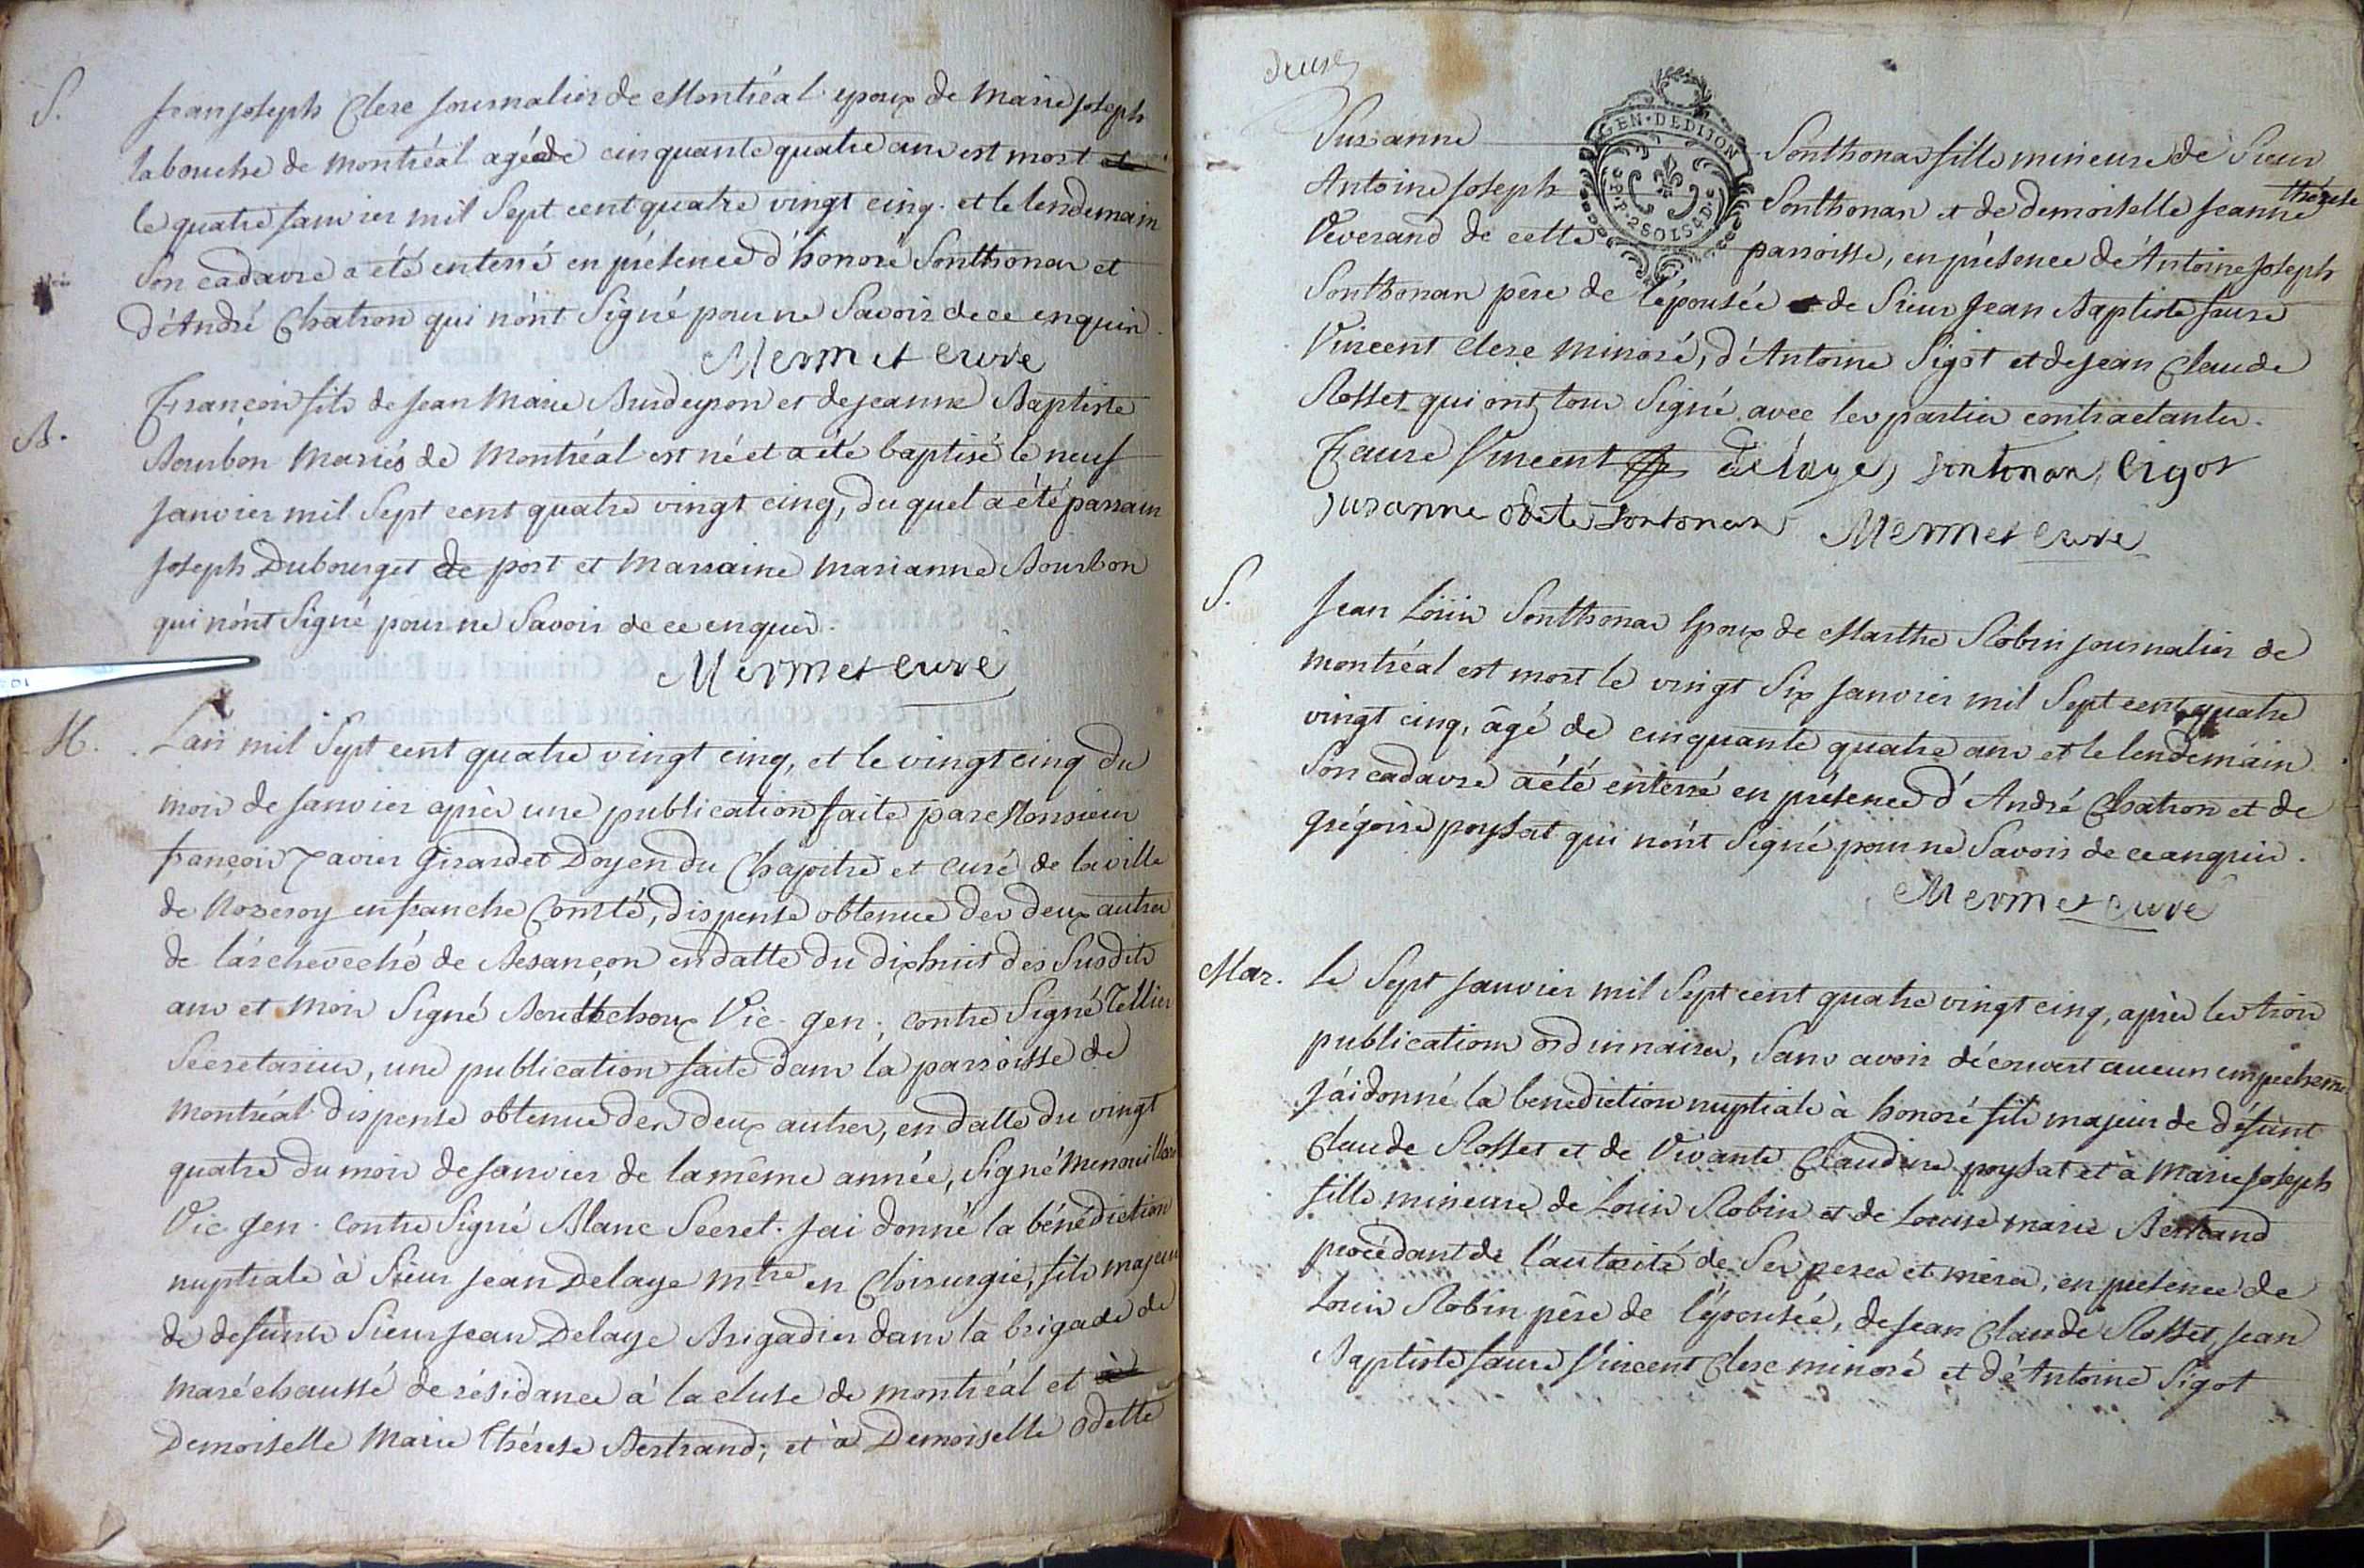 S. Jean joseph Clerc journalier de Montréal epoux de Marie joseph
labouche de Montréal agé de cinquante quatre ans est mort
le quatre janvier mil Sept cent quatre vingt cinq. et le lendemain
Son cadavre a été enterré en présence d'honoré Sonthonax et
d'André Chatron qui n'ont Signé pour ne Savoir de ce enquis.
Mermet curé
B. François fils de jean Marie Burdeyron et de jeanne Baptiste
Bourbon Mariés de Montréal est né et a été baptisé le neuf
janvier mil Sept cent quatre vingt cinq, du quel a été parrain
joseph Dubourget de port et Marraine Marianne Bourbon
qui n'ont Signé pour ne Savoir de ce enquis.
Mermet curé
M. L'an mil Sept cent quatre vingt cinq, et le vingt cinq du
mois de janvier après une publication faite par Monsieur
françois Xavier Girardet Doyen du Chapitre et curé de la ville
de Nozeroy en franche Comté, dispense obtenue des deux autres
de l'archevêché de Besançon en datte du dixhuit des Susdits
ans et mois Signé Bouttechoux Vic. gen; contre Signé Tellier
Secretarius, une publication faite dans la parroisse de
Montréal dispense obtenue des deux autres, en datte du vingt
quatre du mois de janvier de la même année, Signé Menouillard
Vic gen. Contre Signé Blanc Secret. jai donné la bénédiction
nuptiale à Sieur jean Delaye Mtre en Chirurgie, fils majeur
de defunts Sieur jean Delaye Brigadier dans la brigade de
maréchaussé de résidance à la cluse de montréal et
Demoiselle Marie Thérese Bertrand; et à Demoiselle Odette
deux
Suzanne Sonthonax fille mineure de Sieur
GEN. DE DIJON
P.P. 2 SOLS 4 D.
Antoine joseph Sonthonax et de demoiselle jeanne thérese
Veverand de cette parroisse, en présence d'Antoine joseph
Sonthonax père de l'épousée de Sieur jean Baptiste faure
Vincent clerc minoré, d'Antoine Sigot et de jean Claude
Rosset qui ont tous Signé avec les parties contractantes.
Faure Vincent delaye, Sontonax, Cigot
Suzanne odete Sontonax Mermet curé
S. Jean Louis Sonthonax Epoux de Marthe Robin journalier de
montréal est mort le vingt Six janvier mil Sept cent quatre
vingt cinq, âgé de cinquante quatre ans et le lendemain
Son cadavre a été enterré en présence d'André Chatron et de
grégoire poysat qui n'ont Signé pour ne Savoir de ce anquis.
Mermet curé
Mar. Le Sept janvier mil Sept cent quatre vingt cinq, après les trois
publications ordinnaires, Sans avoir découvert aucun empecheme
j'ai donné la benediction nuptiale à honoré fils majeur de défunt
Claude Rosset et de Vivante Claudine poysat et à Marie joseph
fille mineure de Louis Robin et de Louise marie Bertrand
procédant de l'autorité de Ses peres et mères, en présence de
Louis Robin père de l'épousée, de jean Claude Rosset, jean
Baptiste faure Vincent Clerc minoré et d'Antoine Sigot